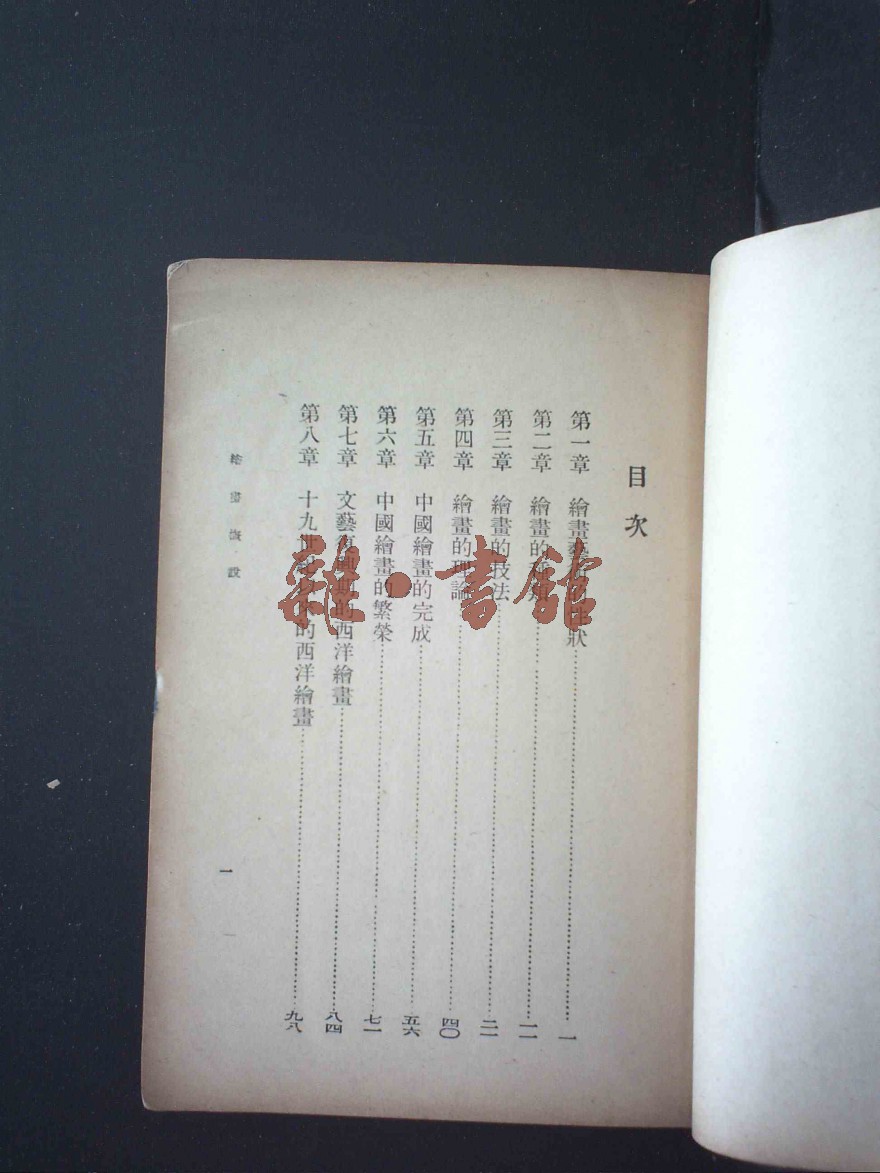 目次
第一章　繪畫藝術的性狀……………一
第二章　繪畫的種類……………一一
第三章　繪畫的技法……………二一
第四章　繪畫的理論……………四〇
第五章　中國繪畫的完成……………五六
第六章　中國繪畫的繁榮……………七一
第七章　文藝復興期的西洋繪畫……………八四
第八章　十九世紀以來的西洋繪畫……………九八
繪畫概說
一
雜·書館